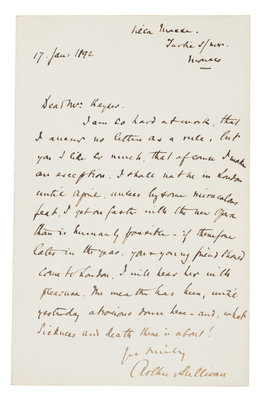 Villa
Turbie s/mer.
Monaco
17. Jan: 1892
Dear Mrs Keyser.
I am so hard at work, that
I answer no letters as a rule, but
you I like so much, that of course I make
an exception. I shall not be in London
until April, unless by some miraculous
feat, I get on faster with the new opera
than is humanly possible - if therefore
later in the year, your young friend should
come to London, I will hear her with
pleasure. The weather has been, until
yesterday atrocious down here - and, what
sickness and death there is about!
Yrs sincerely
Arthur Sullivan